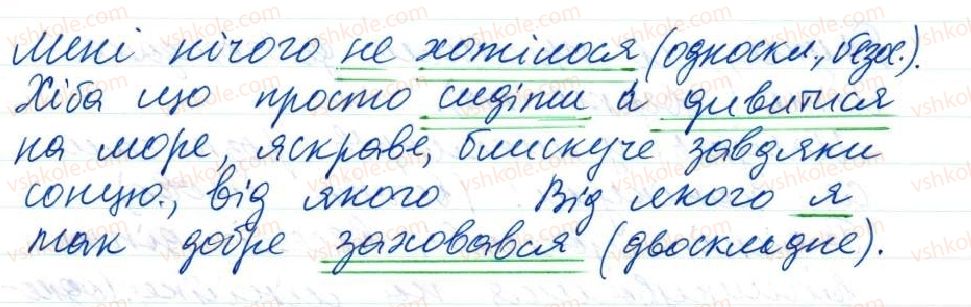 Мені нічого не хотілося (односкл., безос.).
Хіба що просто сидіти й дивитися
на море, яскраве, блискуче завдяки
сонцю., від якого Від якого я
так добре заховався (двоскладне).